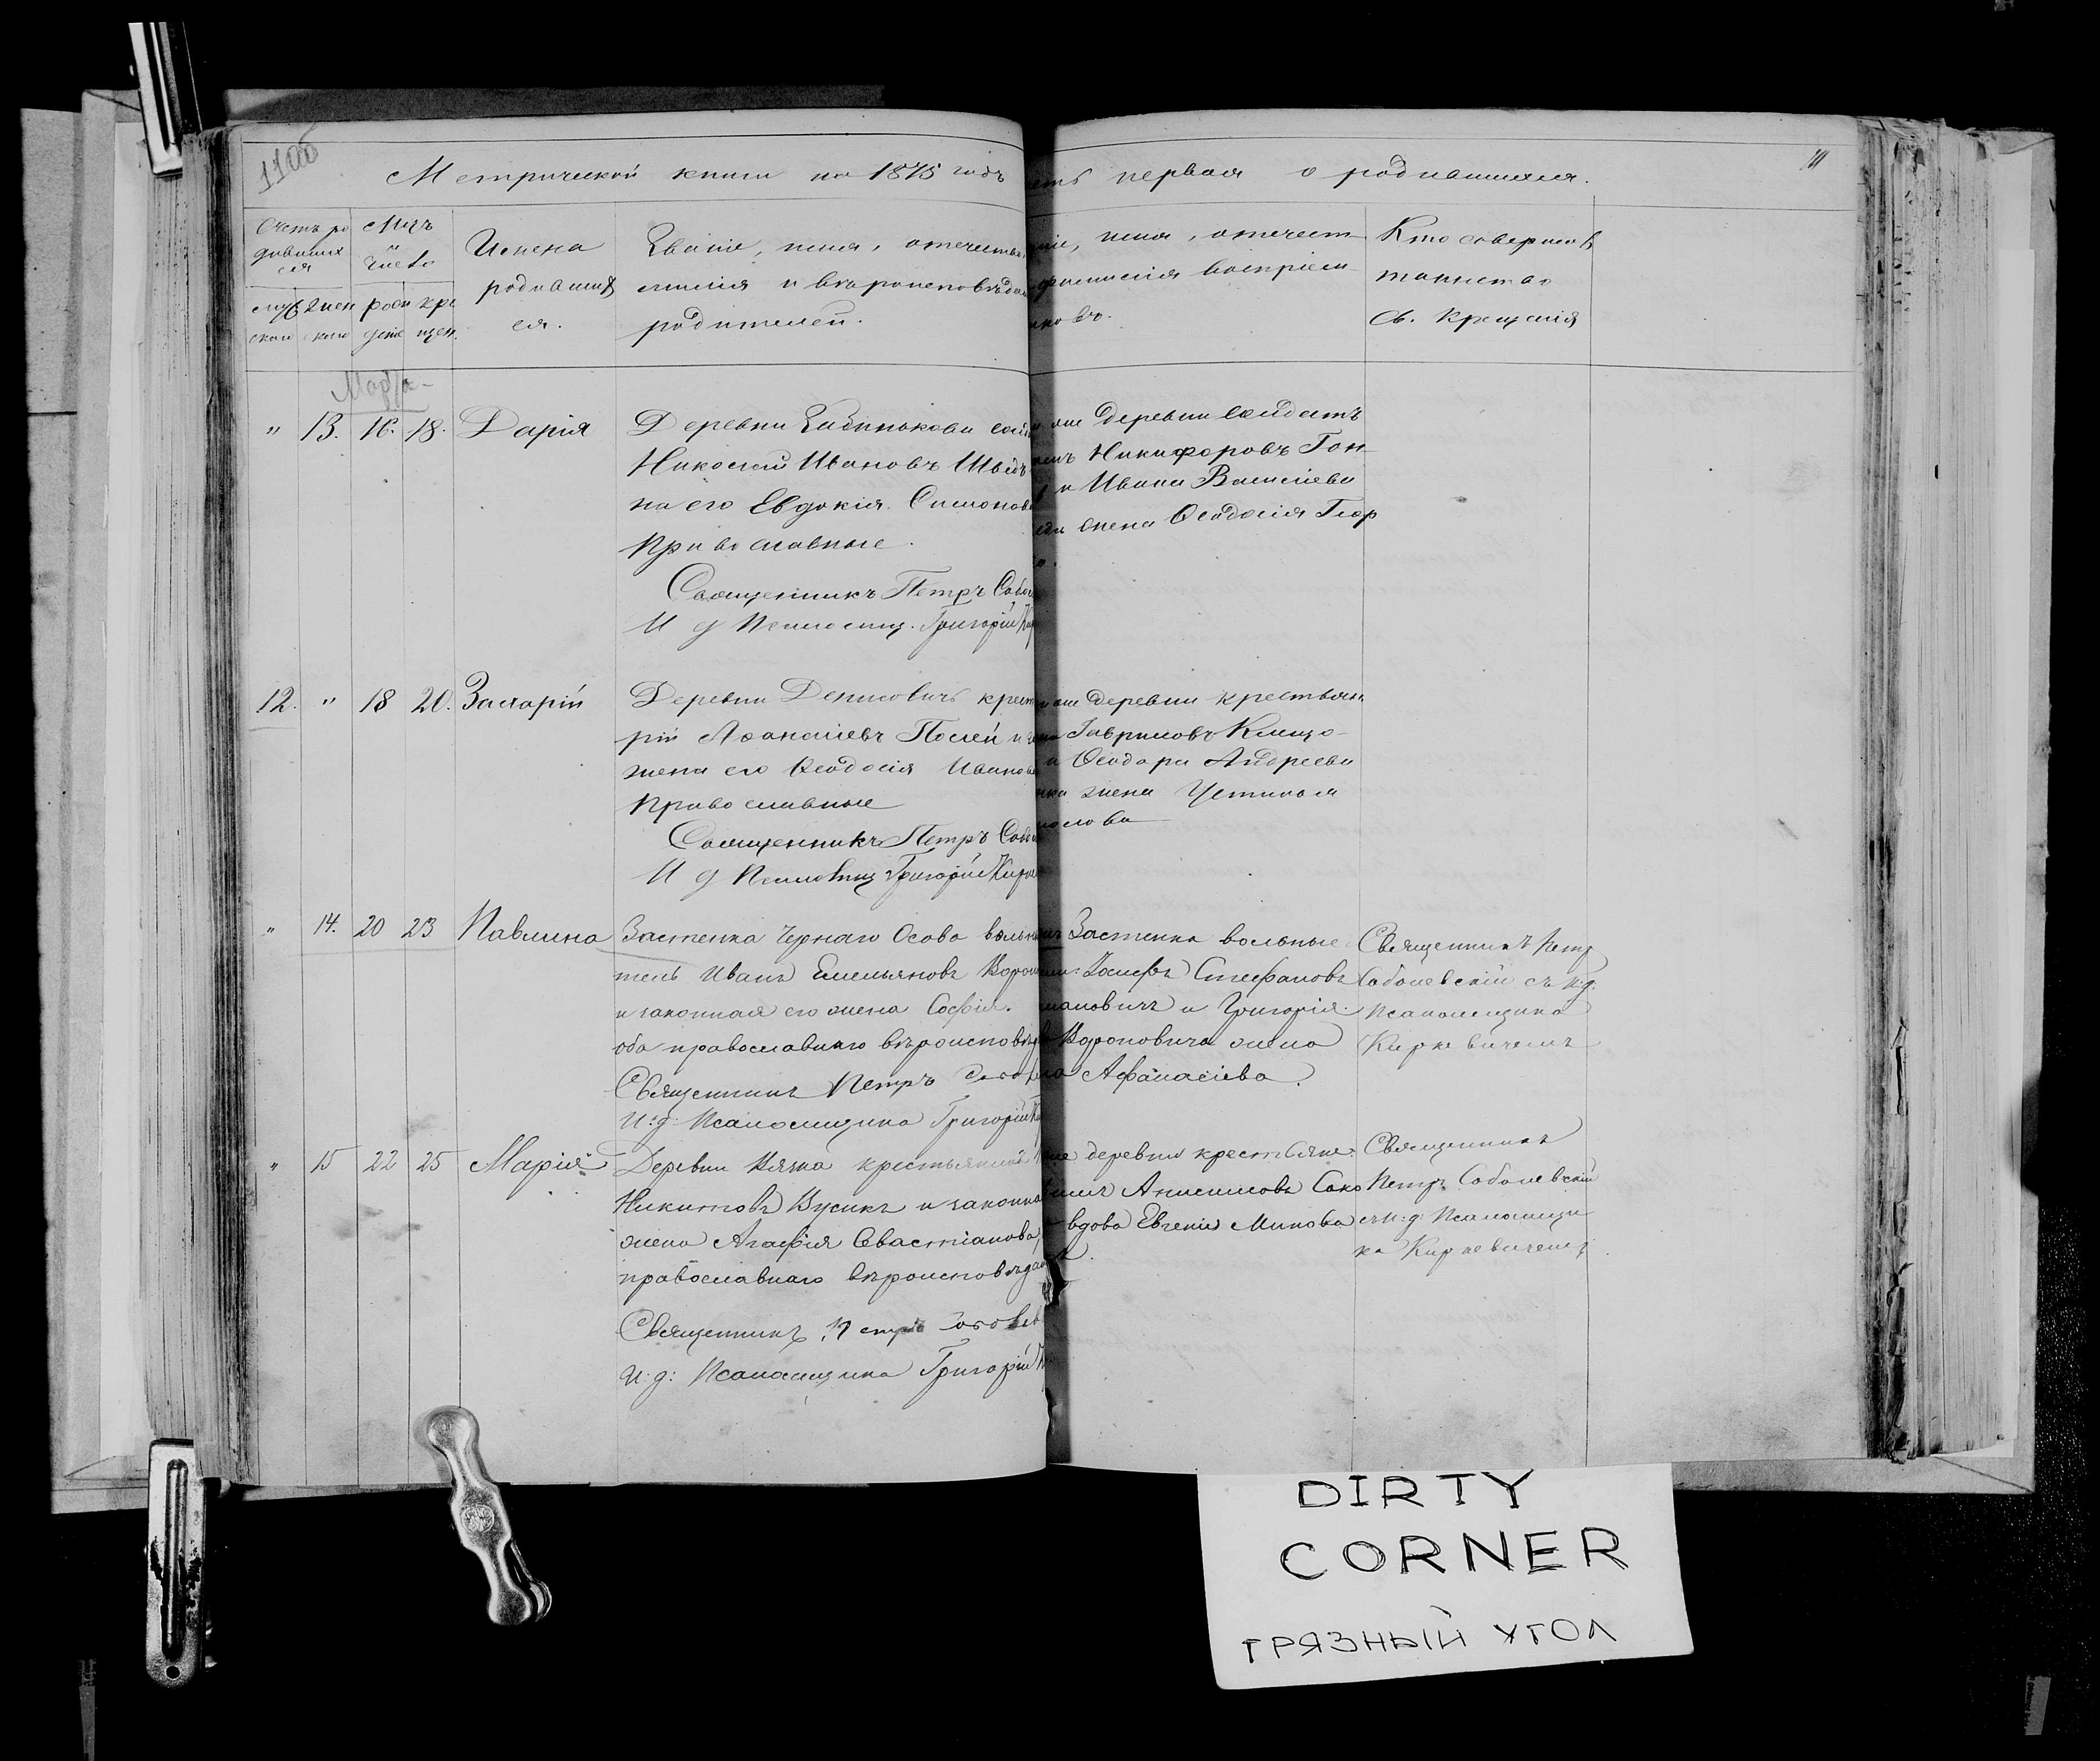 110об
111
Метрической книги на 1875 годъ
сть первая о родившихся.
Счетъ ро
дивших
ся
муж
ска
жен
ска
Мѣс
и
число
рож
дение
кре
щен.
Имена
родивших
ся.
Званіе, имя, отчество,
милія и вѣроисповѣдан
родителей.
ніе, имя, отчест
фамилія воспріем
никовъ.
Кто совершалъ
таинство
св. Крещенія
Марта
" 13. 16. 18. Дарія
Деревни
Николай Ивановъ Швед
на его Евдокія Симонов
Православные.
Священникъ Петръ Собол
И д Псаломщ. Григорій Кир
деревни солдатъ
Никифоровъ Гон
и Ивана Василіева
жена Ѳеодосія Геор
12. " 18 20. Захарій
Деревни Денисовичъ крест
рій Аѳанасіевъ Полей и
жена его Ѳеодосія Иванов
Православные
Священникъ Петръ Собол
И д Псаломщ Григорій Кирк
деревни крестьян
Гавриловъ Клещо
и Ѳеодора Андреева
жена Устинья
" 14. 20 23 Павлина
Застенка Чернаго Осова вольн
тель Иванъ Емельяновъ Ворон
и законная его жена Софія.
оба православнаго вѣроисповѣд
Священникъ Петръ Собол
И:д: Псаломщика Григорій Ки
Застенка вольные
Іосифъ Стефановъ
мановичъ и Григорія
Вороновича жена
Афанасіева.
Священникъ Петр
Соболевскій съ и:д:
Псаломщика
Киркевичемъ
" 15 22 25 Марія
Деревни Клячка крестьянинъ
Никитовъ Бусикъ и законна
жена Агафія Севастіанова,
православнаго вѣроисповѣдан
Священникъ Петръ Соболев
И:д: Псаломщика Григорій К
деревни крестьяне
Анисимовъ Соко
вдова Евгенія Минова
Священникъ
Петръ Соболевскій
съ и:д: Псаломщи
ка Киркевичемъ
DIRTY
CORNER
ГРЯЗНЫЙ УГОЛ